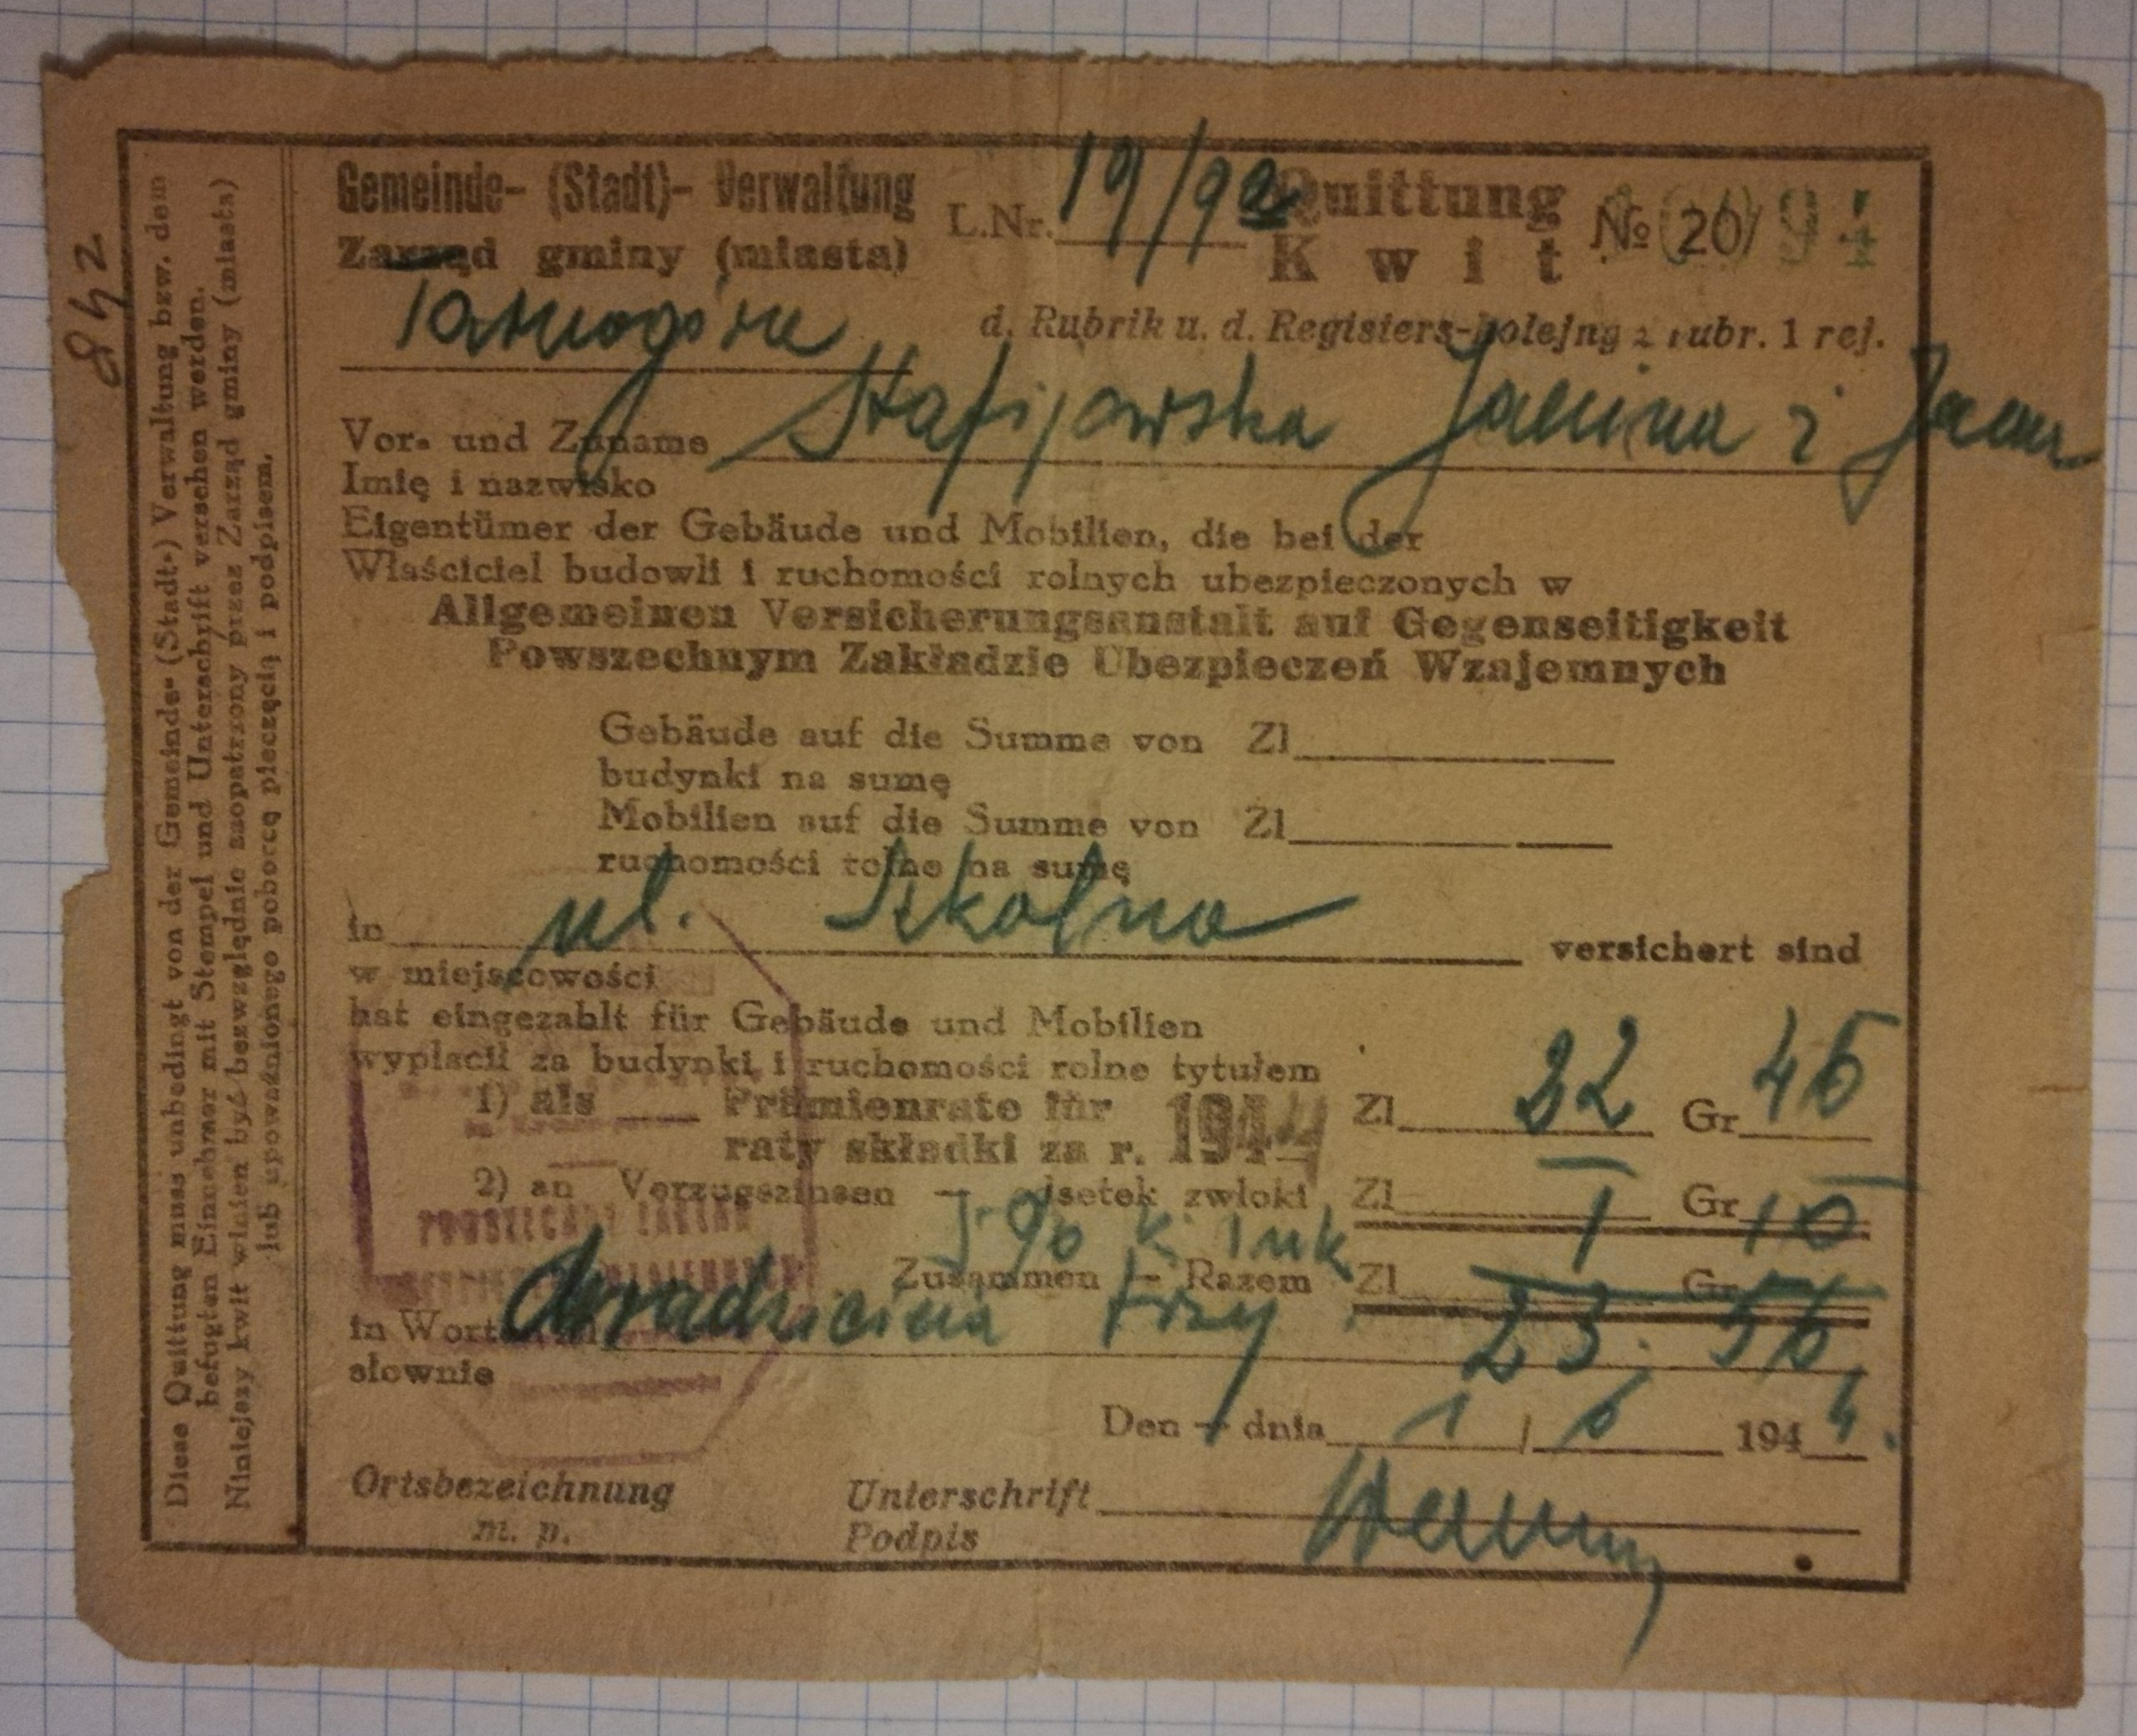 842
Diese Quittung muss unbedingt von der Gemeinde- (Stadt-) Verwaltung bzw. dem
befugten Einnehmer mit Stempel und Unterschrift versehen werden.
Niniejszy kwit winien być bezwzględnie zaopatrzony przez Zarząd gminy (miasta)
lub upoważnionego poborcę pieczęcią i podpisem.
Gemeinde- (Stadt)- Verwaltung L.Nr. 19/92 Quittung
Zarząd gminy (miasta) K w i t № 20/
Tarnogóra d. Rubrik u. d. Registers-kolejny z rubr. 1 rej.
Vor- und Zuname Stafijowska Janina i
Imię i nazwisko
Eigentümer der Gebäude und Mobilien, die bei der
Właściciel budowli i ruchomości rolnych ubezpieczonych w
Allgemeinen Versicherungsanstalt auf Gegenseitigkeit
Powszechnym Zakładzie Ubezpieczeń Wzajemnych
Gebäude auf die Summe von Zl
budynki na sumę
Mobilien auf die Summe von Zl
ruchomości rolne na sumę
in ul. Szkolna versichert sind
w miejscowości
hat eingezahlt für Gebäude und Mobilien
wypłacił za budynki i ruchomości rolne tytułem
1) als Prämienrate für 1944 Zl 22 Gr 45
raty składki za r.
2) an Verzugszinsen - odsetek zwłoki Zl 1 Gr 10
Zusammen - Razem Zl Gr
in Worten trzy 23
słownie
Den - dnia 1/6 1944.
Ortsbezeichnung Unterschrift
m. p. Podpis